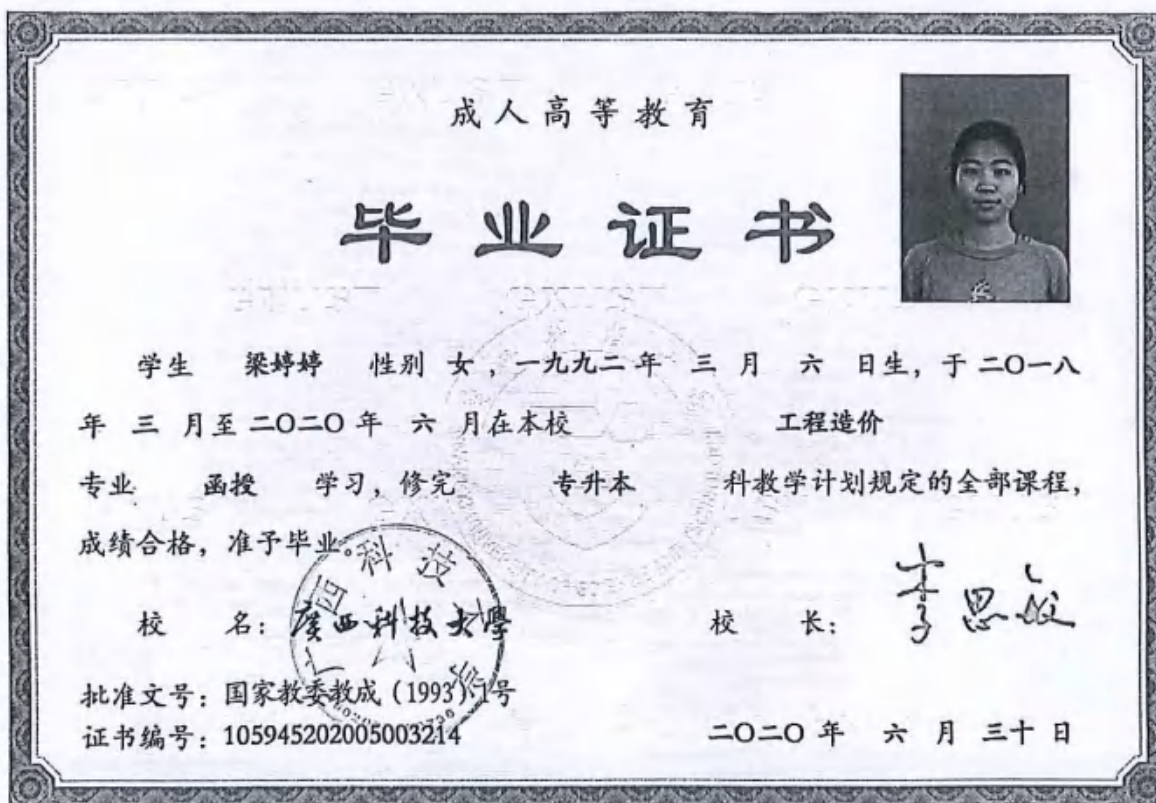 成人高等教育
毕业证书
学生 梁婷婷 性别 女，一九九二年 三 月 六 日生，于二〇一八
年 三 月至二〇二〇年 六 月在本校 工程造价
专业 函授 学习，修完 专升本 科教学计划规定的全部课程，
成绩合格，准予毕业。
校 名：廣西科技大學
校 长：李思敏
批准文号：国家教委教成（1993）1号
证书编号：105945202005003214
二〇二〇年 六 月 三十 日